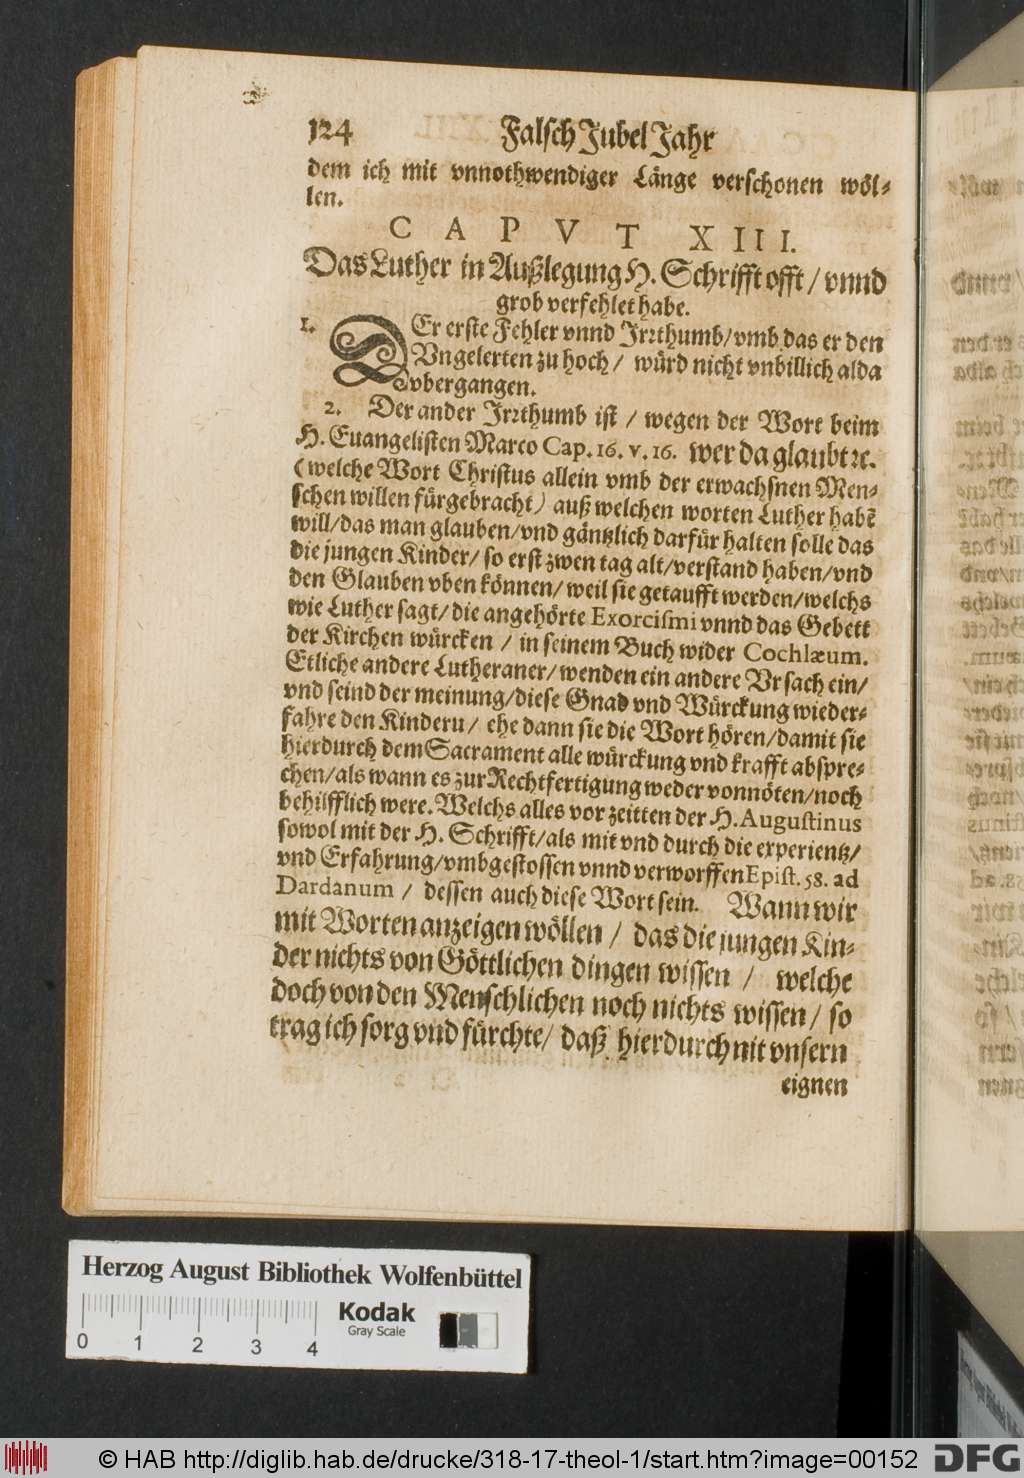 124 Falsch Jubel Jahr
dem ich mit vnnothwendiger Länge verschonen wöl-
len.
CAPVT XIII.
Das Luther in Außlegung H. Schrifft offt / vnnd
grob verfehlet habe.
1. DEr erste Fehler vnnd Jrrthumb/vmb das er den
Vngelerten zu hoch / würd nicht vnbillich alda
vbergangen.
2. Der ander Jrrthumb ist / wegen der Wort beim
H. Euangelisten Marco Cap. 16. v. 16. wer da glaubt ꝛc.
(welche Wort Christus allein vmb der erwachsnen Men-
schen willen fürgebracht) auß welchen worten Luther habẽ
will/das man glauben/vnd gäntzlich darfür halten solle das
die jungen Kinder/ so erst zwen tag alt/verstand haben/vnd
den Glauben vben können/ weil sie getaufft werden/welchs
wie Luther sagt/die angehörte Exorcismi vnnd das Gebett
der Kirchen würcken / in seinem Buch wider Cochlæum.
Etliche andere Lutheraner/wenden ein andere Vrsach ein/
vnd seind der meinung/diese Gnad vnd Würckung wieder-
fahre den Kinderu/ ehe dann sie die Wort hören/damit sie
hierdurch dem Sacrament alle würckung vnd krafft abspre-
chen/als wann es zur Rechtfertigung weder vonnöten/noch
behilfflich were. Welchs alles vor zeitten der H. Augustinus
sowol mit der H. Schrifft/als mit vnd durch die experientz/
vnd Erfahrung/vmbgestossen vnnd verworffen Epist. 58. ad
Dardanum / dessen auch diese Wort sein. Wann wir
mit Worten anzeigen wöllen / das die jungen Kin-
der nichts von Göttlichen dingen wissen / welche
doch von den Menschlichen noch nichts wissen / so
trag ich sorg vnd fürchte/ daß hierdurch nit vnsern
eignen
Herzog August Bibliothek Wolfenbüttel
Kodak
Gray Scale
0 1 2 3 4
© HAB http://diglib.hab.de/drucke/318-17-theol-1/start.htm?image=00152
DFG